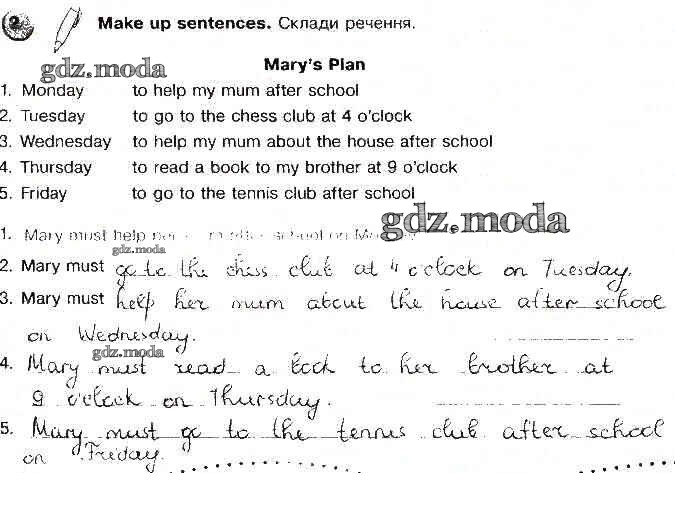 2 Make up sentences. Склади речення.
gdz.moda
Mary's Plan
1. Monday to help my mum after school
2. Tuesday to go to the chess club at 4 o'clock
3. Wednesday to help my mum about the house after school
4. Thursday to read a book to my brother at 9 o'clock
5. Friday to go to the tennis club after school
gdz.moda
1. Mary must help school on
gdz.moda
2. Mary must go to the chess club at 4 o'clock on Tuesday.
3. Mary must help her mum about the house after school
on Wednesday.
gdz.moda
4. Mary must read a book to her brother at
9 o'clock on Thursday.
5. Mary must go to the tennis club after school
on Friday.